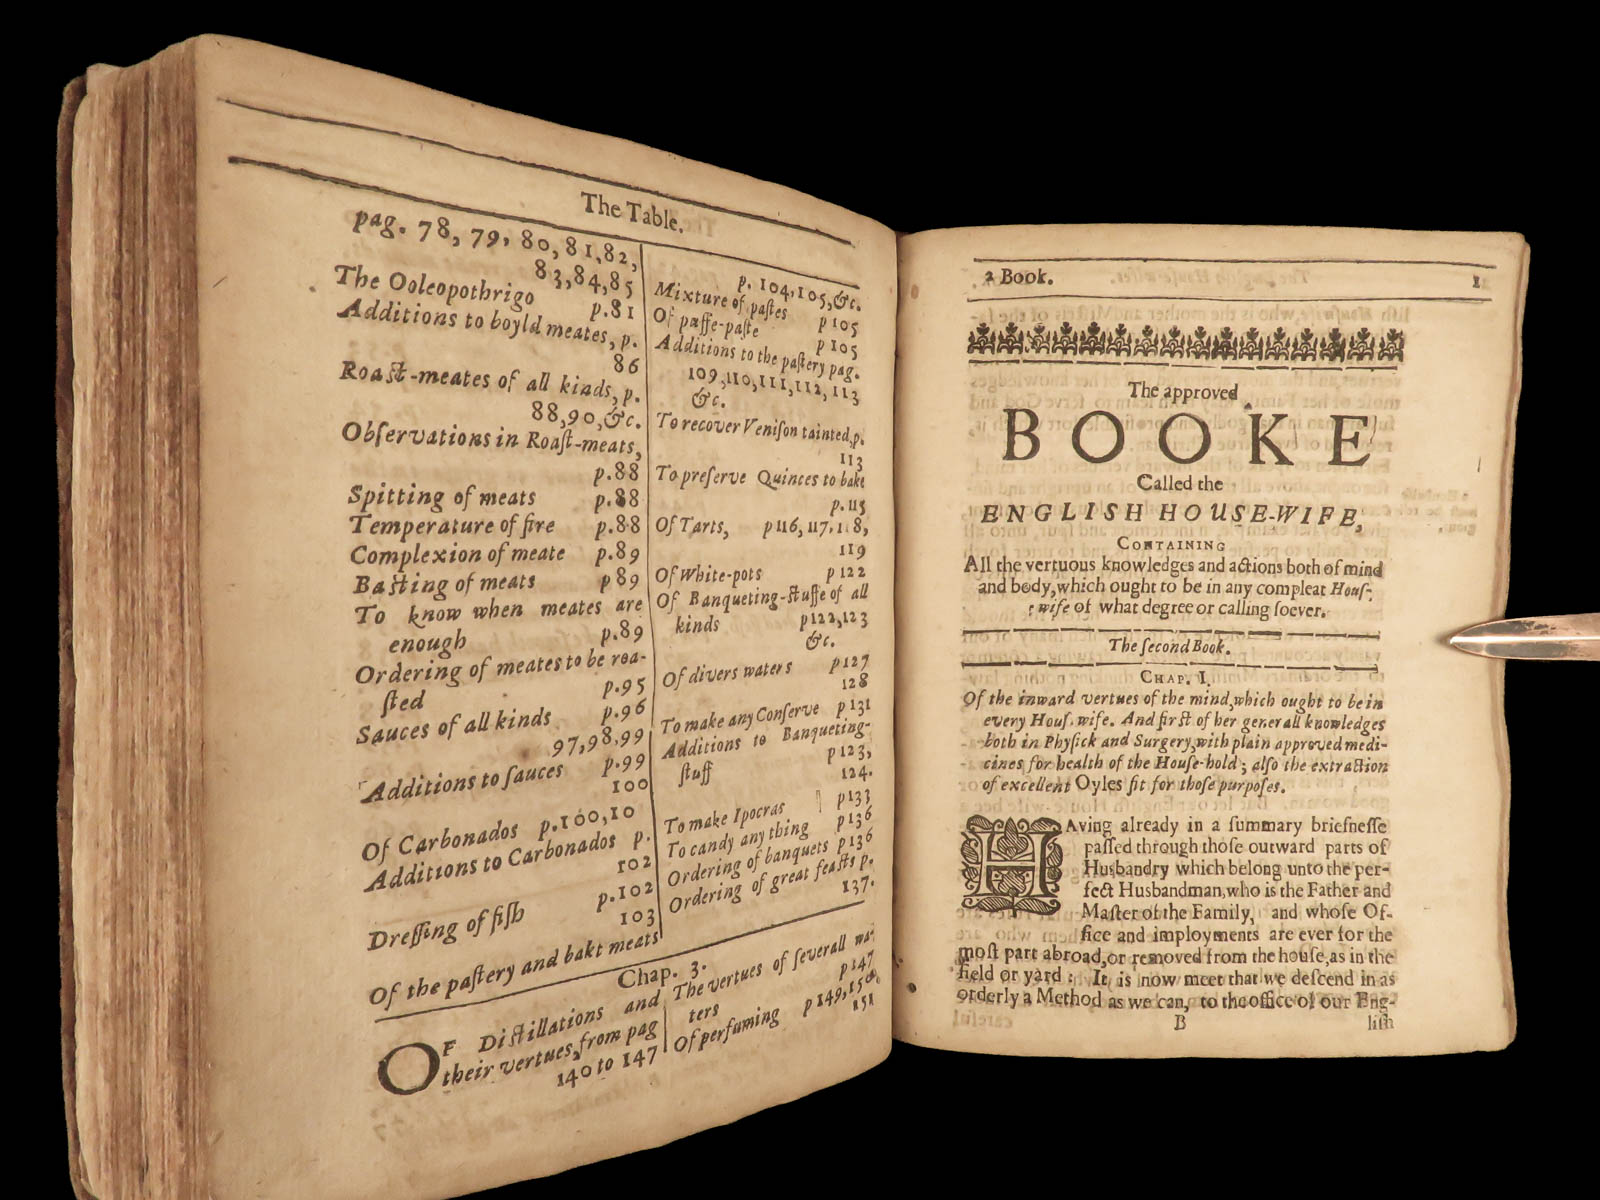 The Table.
pag. 78, 79, 80, 81, 82,
83, 84, 85
The Ooleopothrigo p.81
Additions to boyld meates, p.
86
Roaſt-meates of all kinds, p.
88, 90, &c.
Obſervations in Roaſt-meats,
p.88
Spitting of meats p.88
Temperature of fire p.88
Complexion of meate p.89
Baſting of meats p89
To know when meates are
enough p.89
Ordering of meates to be roa-
ſted p.95
Sauces of all kinds p.96
97,98,99
Additions to ſauces p.99
100
Of Carbonados p.100,10
Additions to Carbonados p.
102
Dreſſing of fiſh p.102
103
Of the paſtery and bakt meats
p. 104, 105, &c.
Mixture of paſtes p 105
Of puffe-paſte p 105
Additions to the paſtery pag.
109, 110, 111, 112, 113
&c.
To recover Veniſon tainted, p.
113
To preſerve Quinces to bake
p. 115
Of Tarts, p 116, 117, 118,
119
Of White-pots p 122
Of Banqueting-ſtuffe of all
kinds p122,123
&c.
Of divers waters p127
128
To make any Conſerve p 131
Additions to Banqueting-
ſtuff p 123,
124.
To make Ipocras p133
To candy any thing p136
Ordering of banquets p136
Ordering of great feaſts p.
137.
Chap. 3.
OF Diſtillations and
their vertues, from pag
140 to 147
The vertues of ſeverall wa-
ters p147
Of perfuming p 149,150
151
2 Book. 1
The approved
BOOKE
Called the
ENGLISH HOUSE-WIFE,
CONTAINING
All the vertuous knowledges and actions both of mind
and body, which ought to be in any compleat Houſ-
wife of what degree or calling ſoever.
The ſecond Book.
CHAP. I.
Of the inward vertues of the mind, which ought to be in
every Houſ-wife. And firſt of her generall knowledges
both in Phyſick and Surgery, with plain approved medi-
cines for health of the Houſe-hold; alſo the extraction
of excellent Oyles fit for thoſe purpoſes.
HAving already in a ſummary briefneſſe
paſſed through thoſe outward parts of
Husbandry which belong unto the per-
fect Husbandman, who is the Father and
Maſter of the Family, and whoſe Of-
fice and imployments are ever for the
moſt part abroad, or removed from the houſe, as in the
field or yard: It is now meet that we deſcend in as
orderly a Method as we can, to the office of our Eng-
B liſh